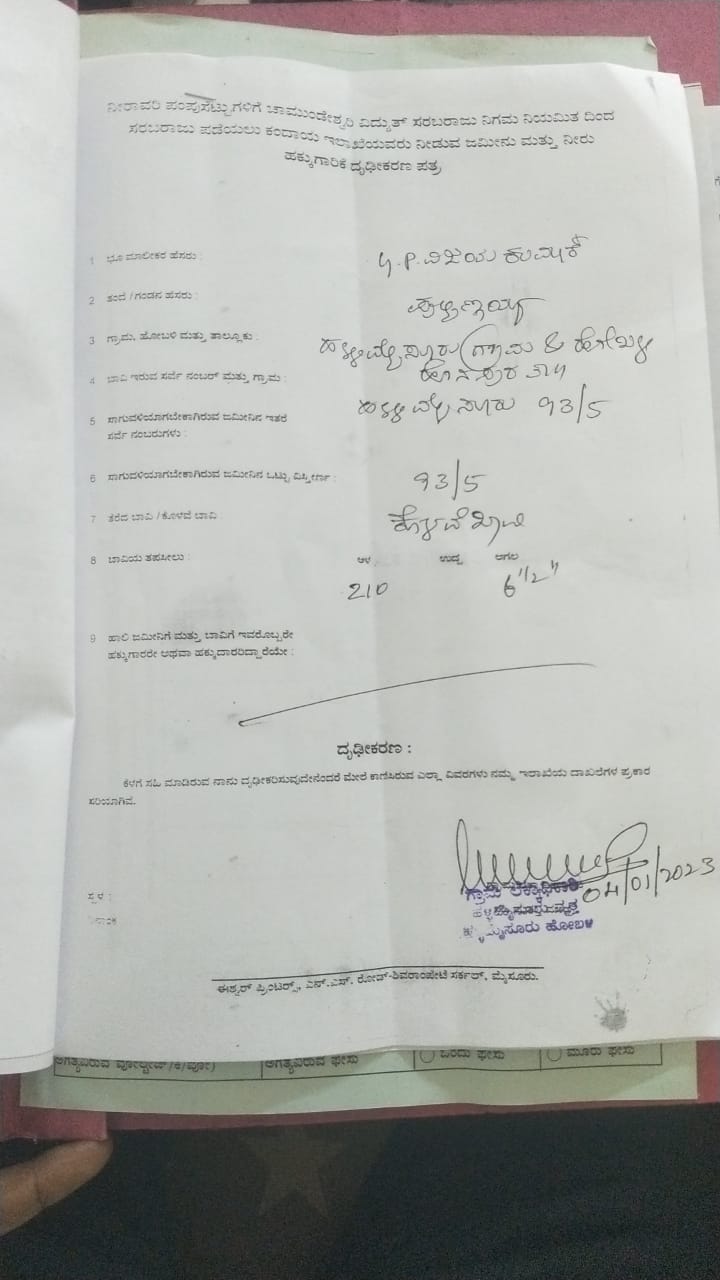 ನೀರಾವರಿ ಪಂಪುಸೆಟ್ಟುಗಳಿಗೆ ಚಾಮುಂಡೇಶ್ವರಿ ವಿದ್ಯುತ್ ಸರಬರಾಜು ನಿಗಮ ನಿಯಮಿತ ದಿಂದ
ಸರಬರಾಜು ಪಡೆಯಲು ಕಂದಾಯ ಇಲಾಖೆಯವರು ನೀಡುವ ಜಮೀನು ಮತ್ತು ನೀರು
ಹಕ್ಕುಗಾರಿಕೆ ದೃಢೀಕರಣ ಪತ್ರ
1 ಭೂ ಮಾಲೀಕರ ಹೆಸರು : ವಿಜಯ ಕುಮಾರ್
2 ತಂದೆ / ಗಂಡನ ಹೆಸರು :
3 ಗ್ರಾಮ, ಹೋಬಳಿ ಮತ್ತು ತಾಲ್ಲೂಕು : ಹಳ್ಳಿಮೈಸೂರು ಗ್ರಾಮ & ಹೋಬಳಿ
4 ಬಾವಿ ಇರುವ ಸರ್ವೆ ನಂಬರ್ ಮತ್ತು ಗ್ರಾಮ :
5 ಸಾಗುವಳಿಯಾಗಬೇಕಾಗಿರುವ ಜಮೀನಿನ ಇತರೆ ಹಳ್ಳಿಮೈಸೂರು 93/5
ಸರ್ವೆ ನಂಬರುಗಳು :
6 ಸಾಗುವಳಿಯಾಗಬೇಕಾಗಿರುವ ಜಮೀನಿನ ಒಟ್ಟು ವಿಸ್ತೀರ್ಣ : 93/5
7 ತೆರೆದ ಬಾವಿ / ಕೊಳವೆ ಬಾವಿ : ಕೊಳವೆ ಬಾವಿ
8 ಬಾವಿಯ ತಪಸೀಲು : ಆಳ ಉದ್ದ ಅಗಲ
210 6 1/2"
9 ಹಾಲಿ ಜಮೀನಿಗೆ ಮತ್ತು ಬಾವಿಗೆ ಇವರೊಬ್ಬರೇ
ಹಕ್ಕುಗಾರರೇ ಅಥವಾ ಹಕ್ಕುದಾರರಿದ್ದಾರೆಯೇ :
ದೃಢೀಕರಣ :
ಕೆಳಗೆ ಸಹಿ ಮಾಡಿರುವ ನಾನು ದೃಢೀಕರಿಸುವುದೇನೆಂದರೆ ಮೇಲೆ ಕಾಣಿಸಿರುವ ಎಲ್ಲಾ ವಿವರಗಳು ನಮ್ಮ ಇಲಾಖೆಯ ದಾಖಲೆಗಳ ಪ್ರಕಾರ
ಸರಿಯಾಗಿವೆ.
04/01/2023
ಸ್ಥಳ :
ಗ್ರಾಮ ಲೆಕ್ಕಾಧಿಕಾರಿ
ಹಳ್ಳಿಮೈಸೂರು ಹೋಬಳಿ
ಈಶ್ವರ್ ಪ್ರಿಂಟರ್ಸ್, ಎನ್.ಎಸ್. ರೋಡ್-ಶಿವರಾಂಪೇಟೆ ಸರ್ಕಲ್, ಮೈಸೂರು.
ಅಗತ್ಯವಿರುವ ಫೇಸು ಒಂದು ಫೇಸು ಮೂರು ಫೇಸು